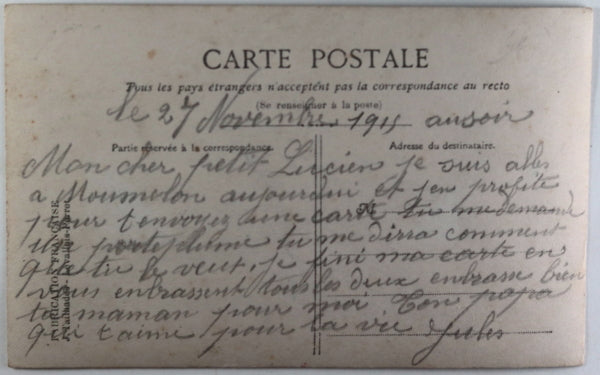 CARTE POSTALE
Tous les pays étrangers n'acceptent pas la correspondance au recto
(Se renseigner à la poste)
le 27 Novembre 1915 au soir
Partie réservée à la correspondance. Adresse du destinataire.
Mon cher petit Lucien je suis aller
a Moumelon aujourdui et jen profite
pour t envoyez une carte tu me demande
un porteplume tu me dirra comment
que tu le veut, je fini ma carte en
vous enbrassent tous les deux enbrasse bien
ta maman pour moi Ton papa
qui t aime pour la vie Jules
M
FABRICATION FRANÇAISE